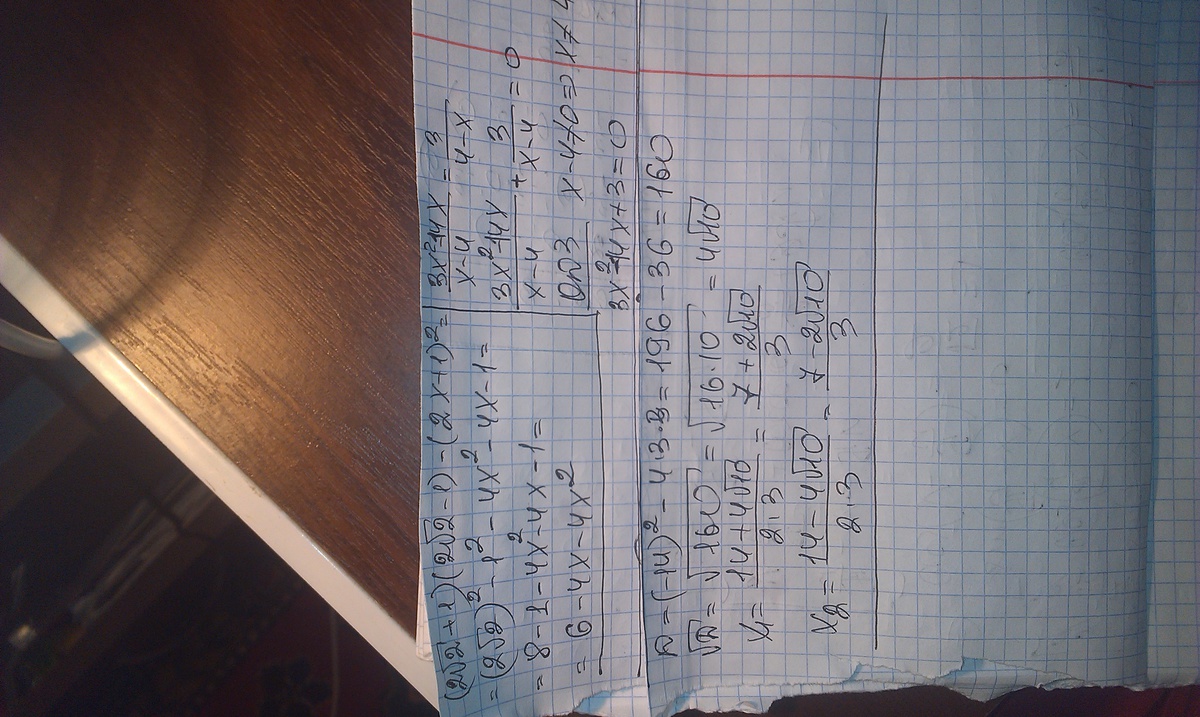 (2√2+1)(2√2-1)-(2x+1)²=
=(2√2)²-1²-4x²-4x-1=
=8-1-4x²-4x-1=
=6-4x-4x²
(3x²-14x)/(x-4)=3/(4-x)
(3x²-14x)/(x-4)+3/(x-4)=0
ОДЗ x-4≠0⇒x≠4
3x²-14x+3=0
D=(-14)²-4·3·3=196-36=160
√D=√160=√(16·10)=4√10
x₁=(14+4√10)/(2·3)=(7+2√10)/3
x₂=(14-4√10)/(2·3)=(7-2√10)/3